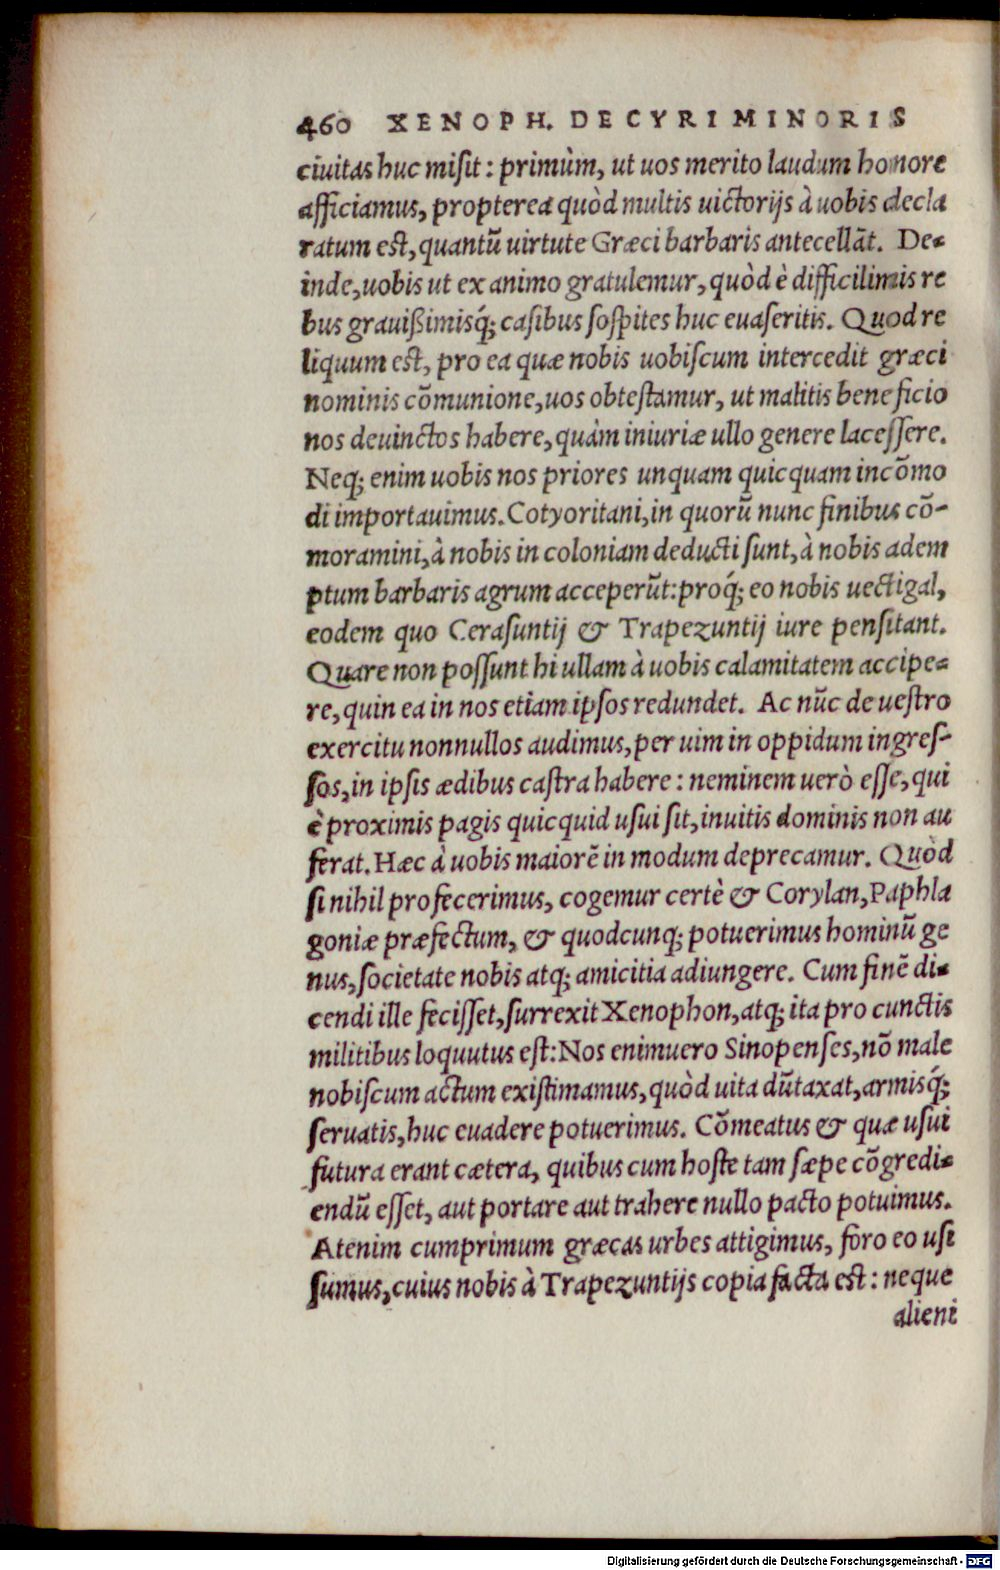 460 XENOPH. DE CYRI MINORIS
ciuitas huc misit: primùm, ut uos merito laudum honore
afficiamus, propterea quòd multis uictorijs à uobis decla
ratum est, quantũ uirtute Græci barbaris antecellãt. De-
inde, uobis ut ex animo gratulemur, quòd è difficilimis re
bus grauißimisq́; casibus sospites huc euaseritis. Quod re
liquum est, pro ea quæ nobis uobiscum intercedit græci
nominis cõmunione, uos obtestamur, ut malitis beneficio
nos deuinctos habere, quàm iniuriæ ullo genere lacessere.
Neq; enim uobis nos priores unquam quicquam incõmo
di importauimus. Cotyoritani, in quorũ nunc finibus cõ-
moramini, à nobis in coloniam deducti sunt, à nobis adem
ptum barbaris agrum acceperũt: proq́; eo nobis uectigal,
eodem quo Cerasuntij & Trapezuntij iure pensitant.
Quare non possunt hi ullam à uobis calamitatem accipe-
re, quin ea in nos etiam ipsos redundet. Ac nũc de uestro
exercitu nonnullos audimus, per uim in oppidum ingres-
sos, in ipsis ædibus castra habere: neminem uerò esse, qui
è proximis pagis quicquid usui sit, inuitis dominis non au
ferat. Hæc à uobis maiorẽ in modum deprecamur. Quòd
si nihil profecerimus, cogemur certè & Corylan, Paphla
goniæ præfectum, & quodcunq; potuerimus hominũ ge
nus, societate nobis atq; amicitia adiungere. Cum finẽ di-
cendi ille fecisset, surrexit Xenophon, atq; ita pro cunctis
militibus loquutus est: Nos enimuero Sinopenses, nõ male
nobiscum actum existimamus, quòd uita dũtaxat, armisq́;
seruatis, huc euadere potuerimus. Cõmeatus & quæ usui
futura erant cætera, quibus cum hoste tam sæpe cõgredi-
endũ esset, aut portare aut trahere nullo pacto potuimus.
Atenim cumprimum græcas urbes attigimus, foro eo usi
sumus, cuius nobis à Trapezuntijs copia facta est: neque
alieni
Digitalisierung gefördert durch die Deutsche Forschungsgemeinschaft - DFG